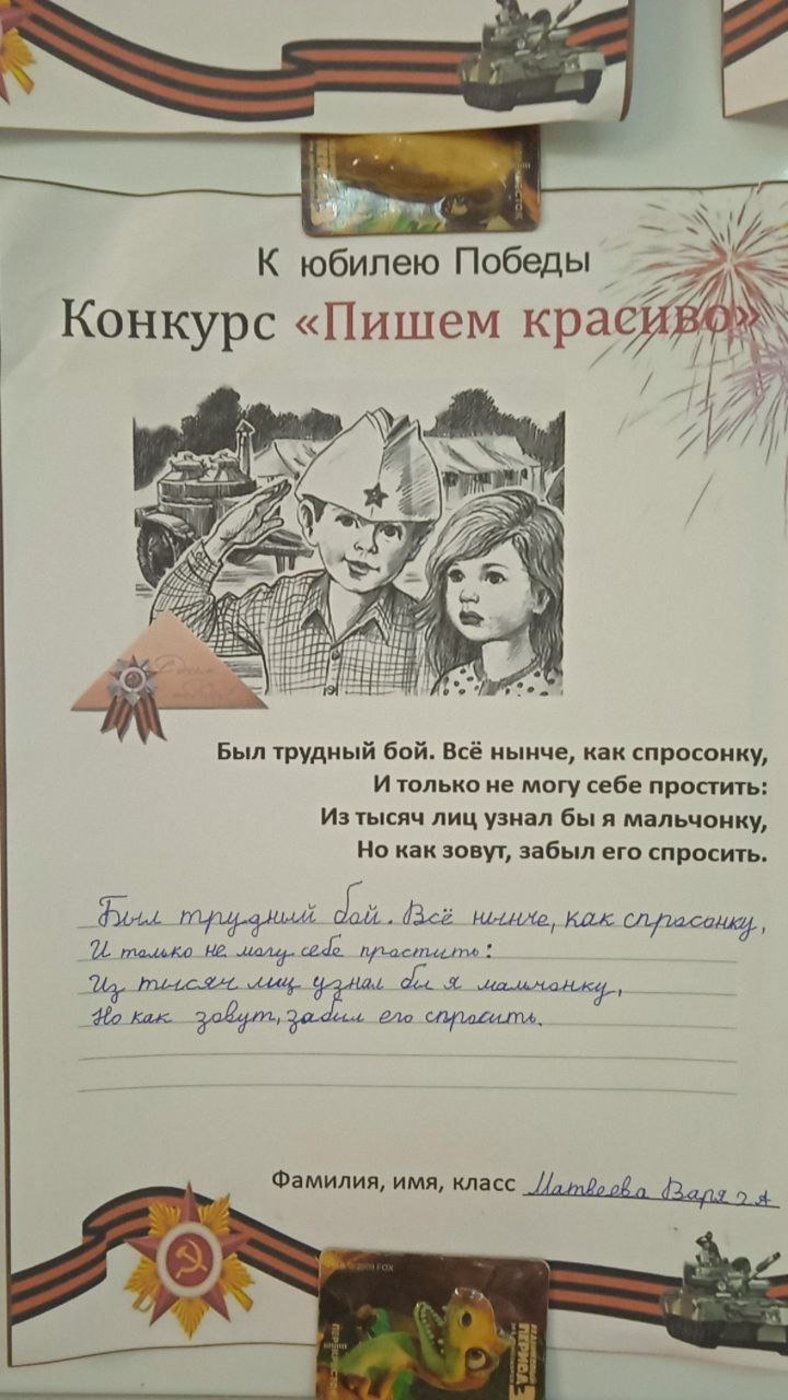 К юбилею Победы
Конкурс «Пишем красиво»
Был трудный бой. Всё нынче, как спросонку,
И только не могу себе простить:
Из тысяч лиц узнал бы я мальчонку,
Но как зовут, забыл его спросить.
Был трудный бой. Всё нынче, как спросонку,
И только не могу себе простить:
Из тысяч лиц узнал бы я мальчонку,
Но как зовут, забыл его спросить.
Фамилия, имя, класс Матвеева Варя 2 А